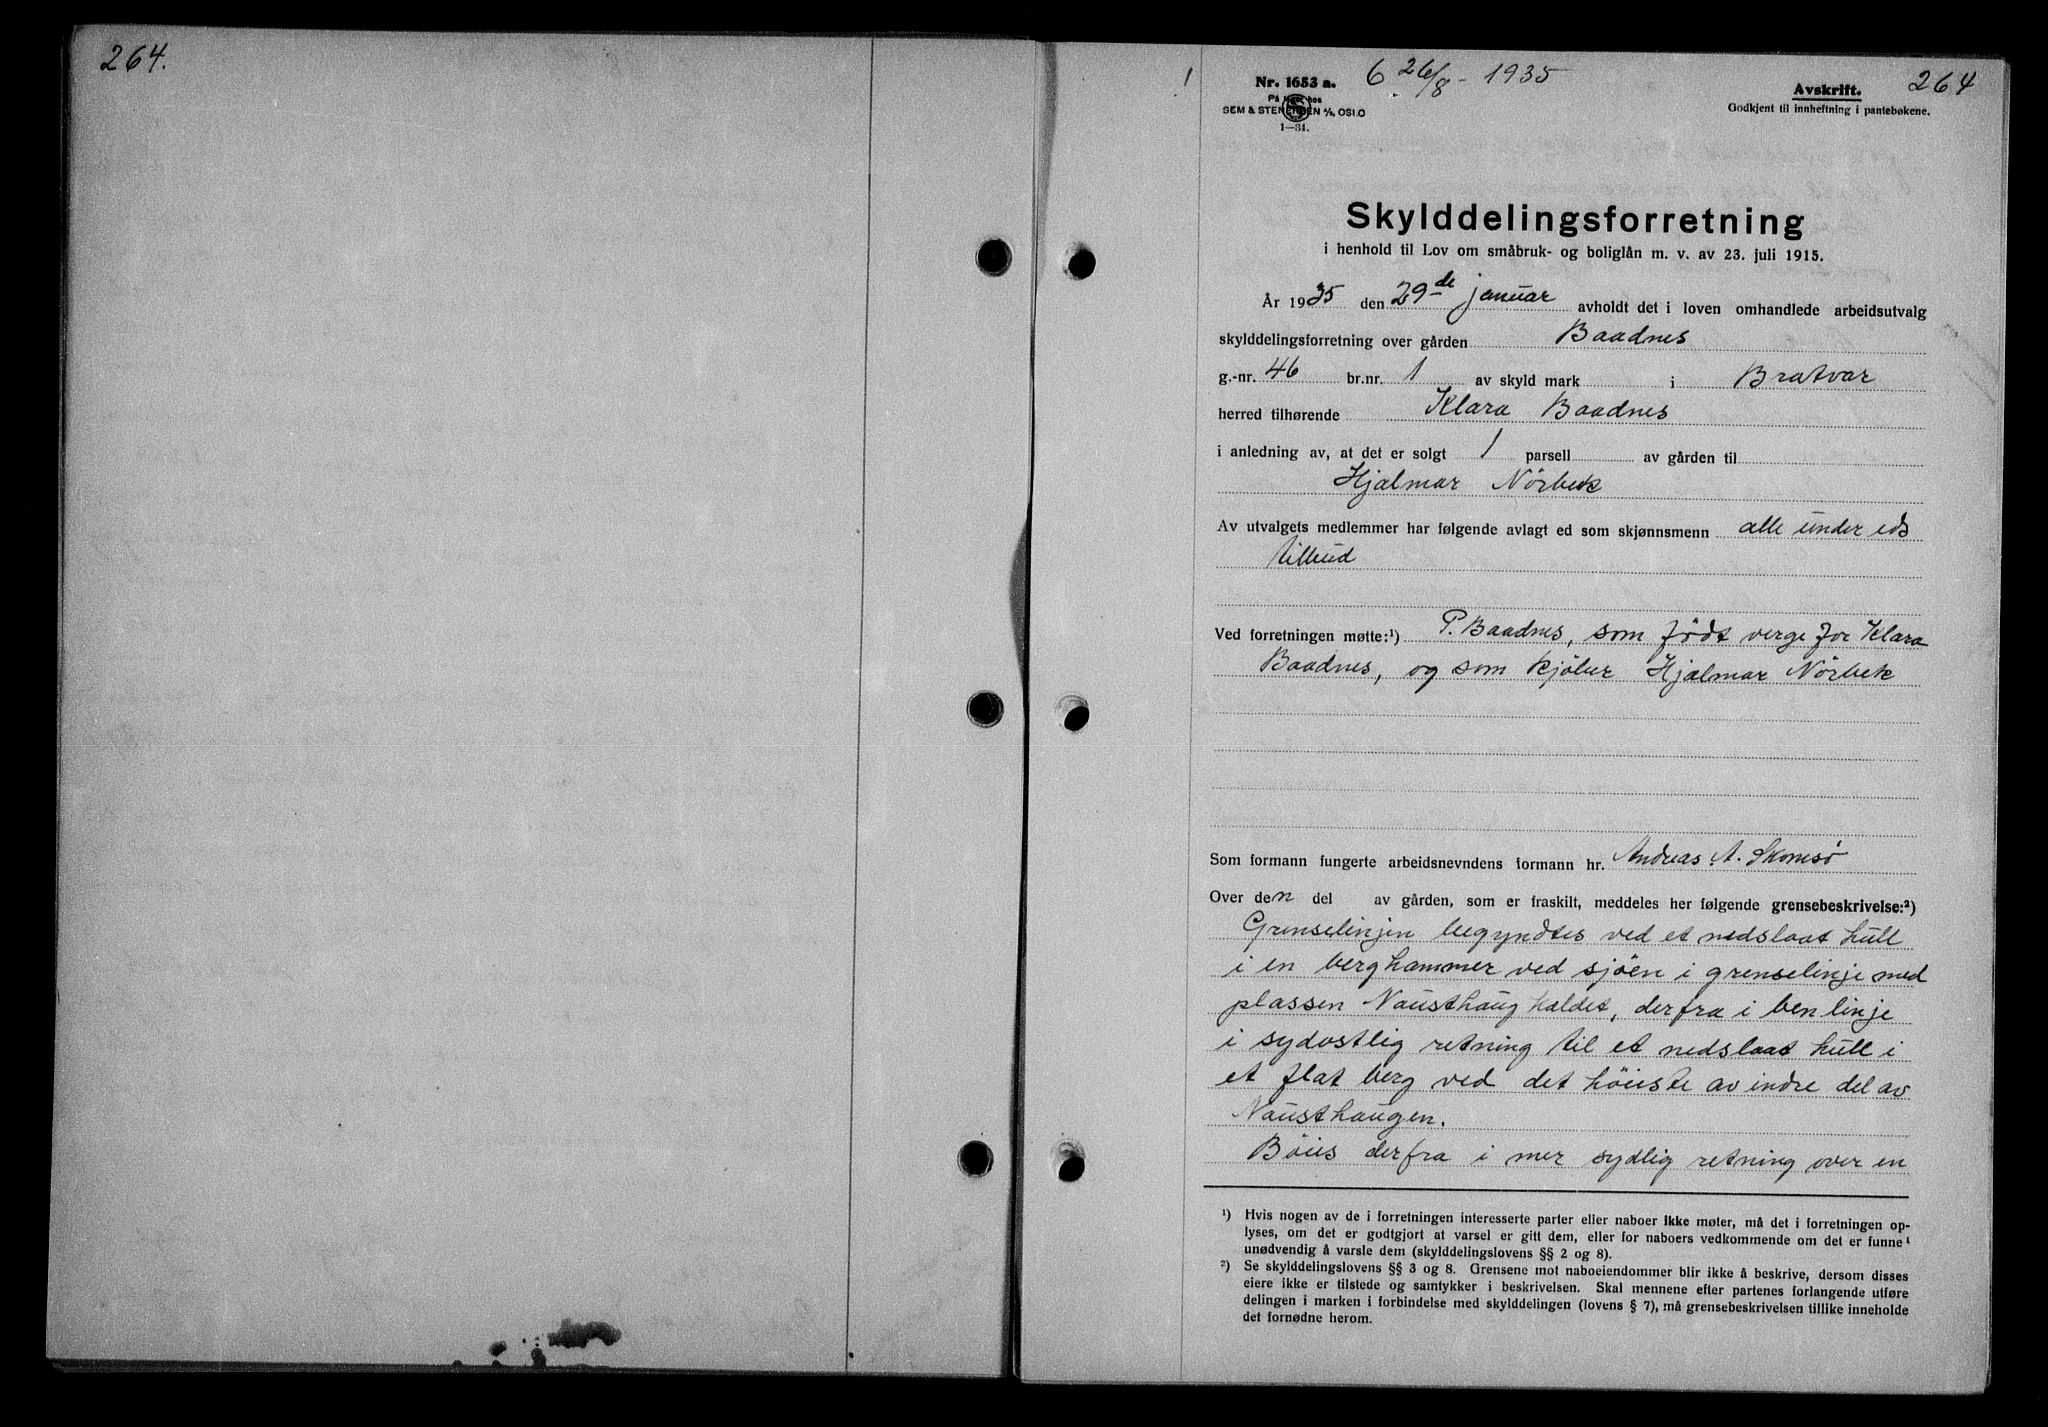 264.
1
Nr. 1653 a.
På lager hos
SEM & STENERSEN A/S, OSLO
1—31.
6 26/8 - 1935
Avskrift.
Godkjent til innheftning i pantebøkene.
264
Skylddelingsforretning
i henhold til Lov om småbruk- og boliglån m. v. av 23. juli 1915.
År 1935 den 29de januar avholdt det i loven omhandlede arbeidsutvalg
skylddelingsforretning over gården Baadnes
g.-nr. 46 br.nr. 1 av skyld mark i Bratvær
herred tilhørende Klara Baadnes
i anledning av, at det er solgt 1 parsell av gården til
Hjalmar Nörbek
Av utvalgets medlemmer har følgende avlagt ed som skjønnsmenn alle under eds
tilbud
Ved forretningen møtte:¹) P. Baadnes, som födt verge for Klara
Baadnes, og som kjöber Hjalmar Nörbek
Som formann fungerte arbeidsnevndens formann hr. Andreas A. Skomsö
Over den del av gården, som er fraskilt, meddeles her følgende grensebeskrivelse:²)
Grenselinjen begyndtes ved et nedslaat hull
i en berghammer ved sjöen i grenselinje med
plassen Nausthaug kaldet, derfra i ben linje
i sydostlig retning til et nedslaat hull i
et flat berg ved det höieste av indre del av
Nausthaugen.
Böies derfra i mer sydlig retning over en
¹) Hvis nogen av de i forretningen interesserte parter eller naboer ikke møter, må det i forretningen op-
lyses, om det er godtgjort at varsel er gitt dem, eller for naboers vedkommende om det er funnet
unødvendig å varsle dem (skylddelingslovens §§ 2 og 8).
²) Se skylddelingslovens §§ 3 og 8. Grensene mot naboeiendommer blir ikke å beskrive, dersom disses
eiere ikke er tilstede og samtykker i beskrivelsen. Skal mennene efter partenes forlangende utføre
delingen i marken i forbindelse med skylddelingen (lovens § 7), må grensebeskrivelsen tillike inneholde
det fornødne herom.